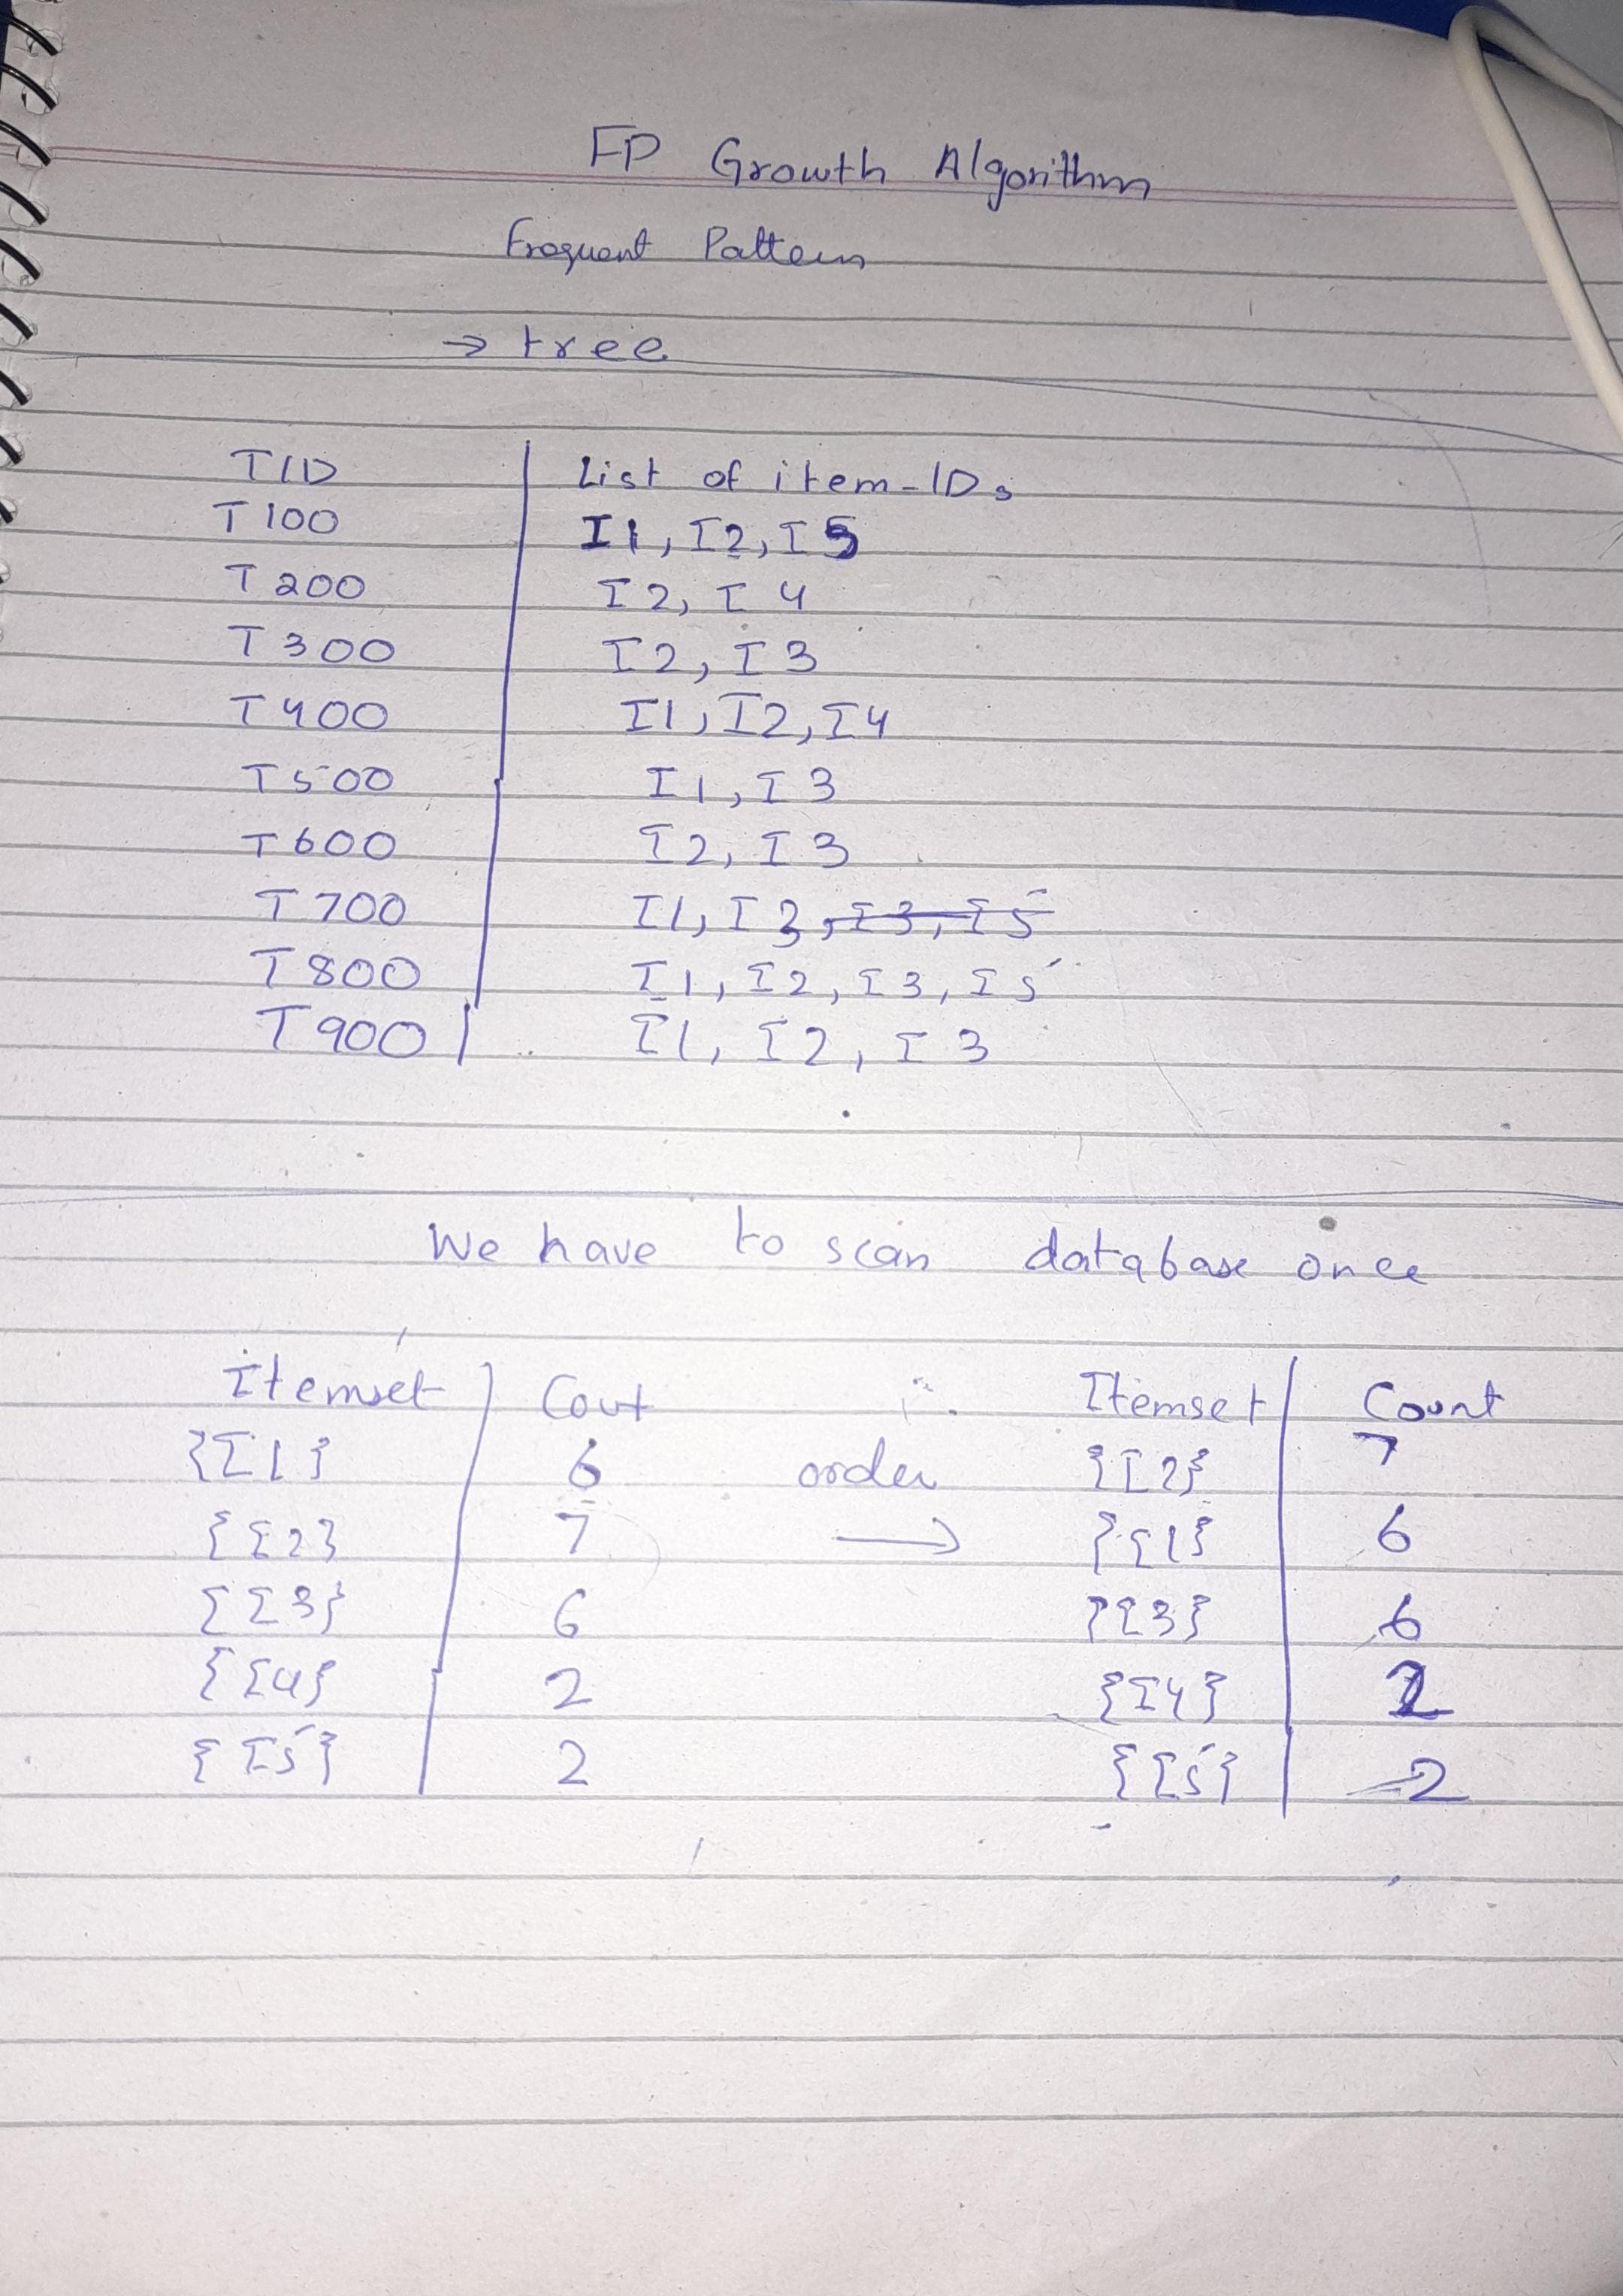 FP Growth Algorithm
Frequent Pattern
→ tree
TID | List of item-IDs
T100 | I1, I2, I5
T200 | I2, I4
T300 | I2, I3
T400 | I1, I2, I4
T500 | I1, I3
T600 | I2, I3
T700 | I1, I3, I3, I5
T800 | I1, I2, I3, I5
T900 | I1, I2, I3
We have to scan database once
Itemset | Cout Itemset | Count
{I1} | 6 order {I2} | 7
{I2} | 7 → {I1} | 6
{I3} | 6 {I3} | 6
{I4} | 2 {I4} | 2
{I5} | 2 {I5} | 2